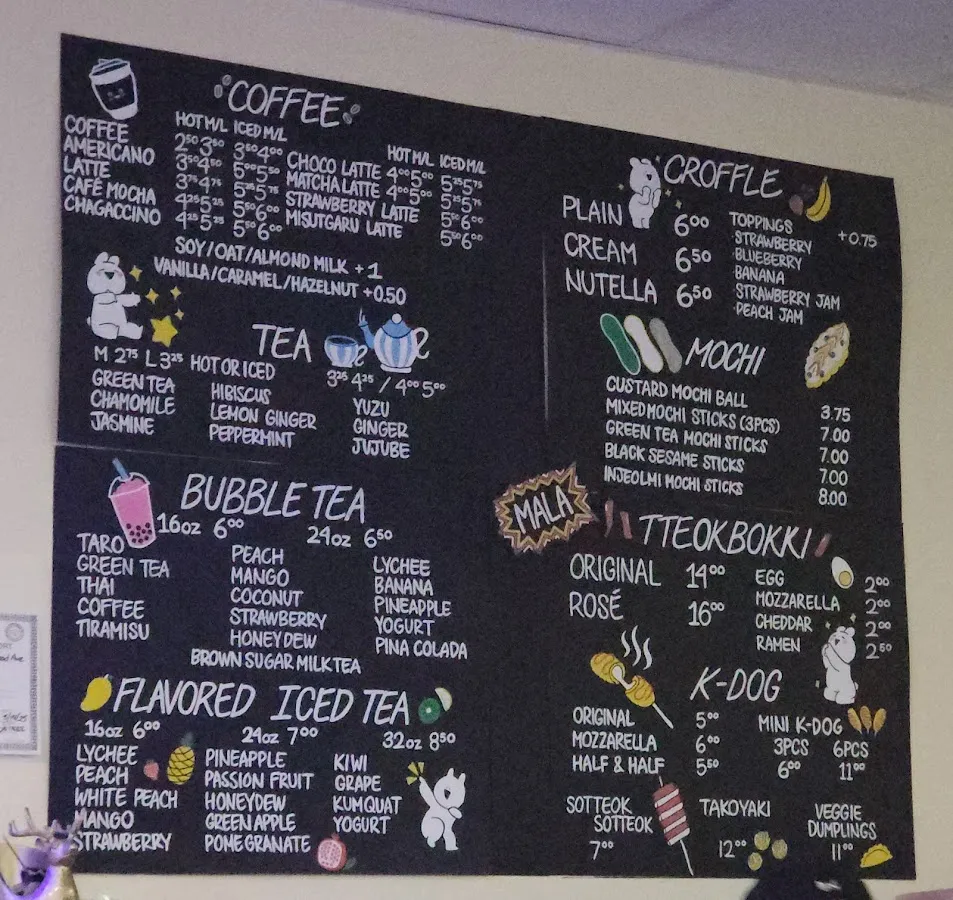 COFFEE
HOT M/L ICED M/L
COFFEE 2⁵⁰ 3⁵⁰ 3⁵⁰ 4⁰⁰
AMERICANO 3⁵⁰ 4⁵⁰ 5⁰⁰ 5⁵⁰
LATTE 3⁷⁵ 4⁷⁵ 5²⁵ 5⁷⁵
CAFÉ MOCHA 4²⁵ 5²⁵ 5⁵⁰ 6⁰⁰
CHAGACCINO 4²⁵ 5²⁵ 5⁵⁰ 6⁰⁰
HOT M/L ICED M/L
CHOCO LATTE 4⁰⁰ 5⁰⁰ 5²⁵ 5⁷⁵
MATCHA LATTE 4⁰⁰ 5⁰⁰ 5²⁵ 5⁷⁵
STRAWBERRY LATTE 5⁵⁰ 6⁰⁰
MISUTGARU LATTE 5⁵⁰ 6⁰⁰
SOY/OAT/ALMOND MILK +1
VANILLA/CARAMEL/HAZELNUT +0.50
TEA
M 2⁷⁵ L 3²⁵ HOT OR ICED
3²⁵ 4²⁵ / 4⁰⁰ 5⁰⁰
GREEN TEA HIBISCUS YUZU
CHAMOMILE LEMON GINGER GINGER
JASMINE PEPPERMINT JUJUBE
BUBBLE TEA
16oz 6⁰⁰ 24oz 6⁵⁰
TARO PEACH LYCHEE
GREEN TEA MANGO BANANA
THAI COCONUT PINEAPPLE
COFFEE STRAWBERRY YOGURT
TIRAMISU HONEYDEW PINA COLADA
BROWN SUGAR MILK TEA
FLAVORED ICED TEA
16oz 6⁰⁰ 24oz 7⁰⁰ 32oz 8⁵⁰
LYCHEE PINEAPPLE KIWI
PEACH PASSION FRUIT GRAPE
WHITE PEACH HONEYDEW KUMQUAT
MANGO GREEN APPLE YOGURT
STRAWBERRY POMEGRANATE
CROFFLE
PLAIN 6⁰⁰
CREAM 6⁵⁰
NUTELLA 6⁵⁰
TOPPINGS +0.75
·STRAWBERRY
·BLUEBERRY
·BANANA
·STRAWBERRY JAM
·PEACH JAM
MOCHI
CUSTARD MOCHI BALL 3.75
MIXED MOCHI STICKS (3PCS) 7.00
GREEN TEA MOCHI STICKS 7.00
BLACK SESAME STICKS 7.00
INJEOLMI MOCHI STICKS 8.00
MALA
TTEOKBOKKI
ORIGINAL 14⁰⁰
ROSÉ 16⁰⁰
EGG 2⁰⁰
MOZZARELLA 2⁰⁰
CHEDDAR 2⁰⁰
RAMEN 2⁵⁰
K-DOG
ORIGINAL 5⁰⁰
MOZZARELLA 6⁰⁰
HALF & HALF 5⁵⁰
MINI K-DOG
3PCS 6PCS
6⁰⁰ 11⁰⁰
SOTTEOK
SOTTEOK
7⁰⁰
TAKOYAKI
12⁰⁰
VEGGIE
DUMPLINGS
11⁰⁰